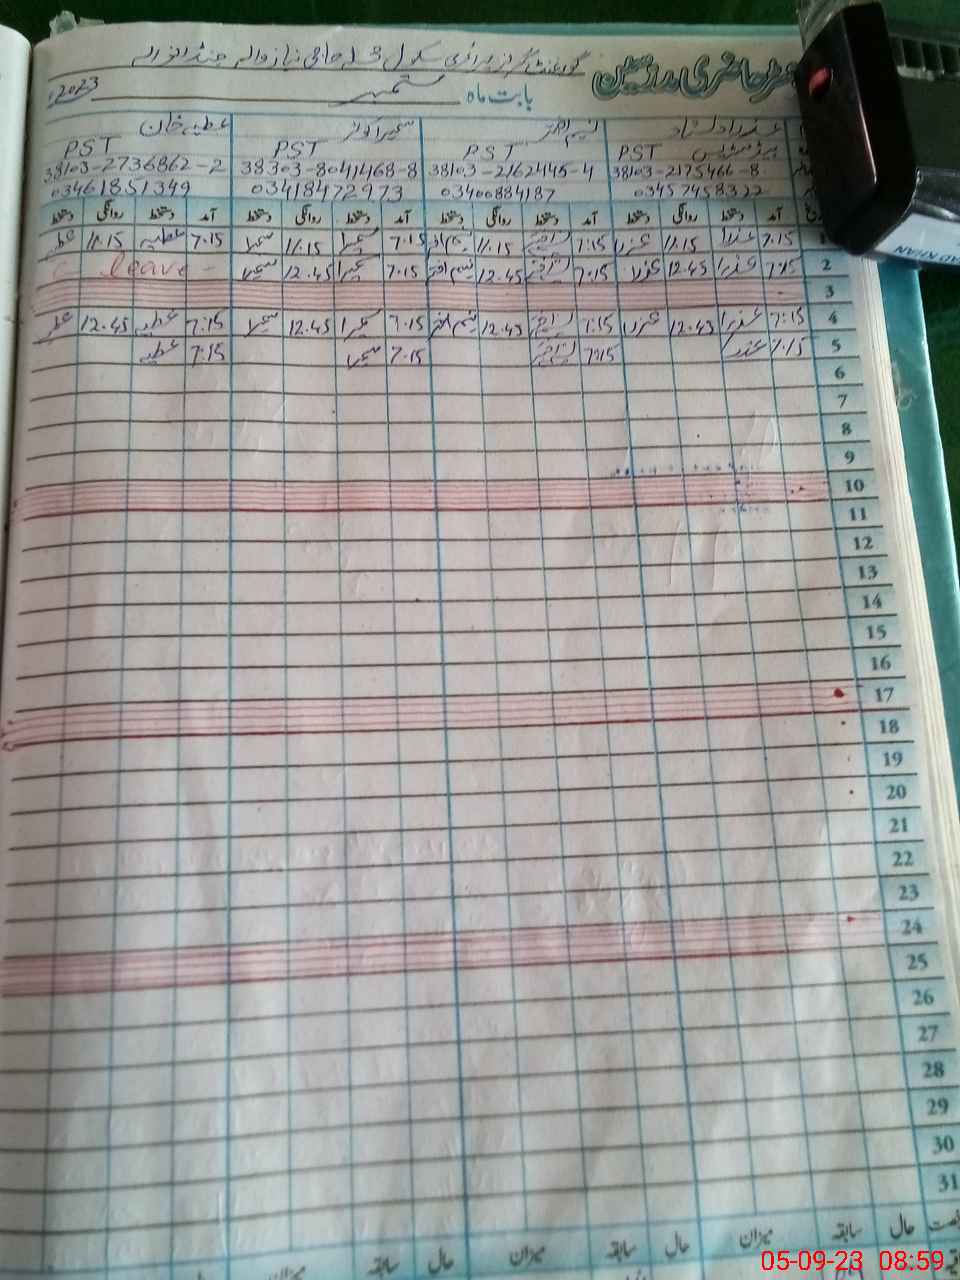 گورنمنٹ گرلز پرائمری سکول
رجسٹر حاضری مدرسین
بابت ماہ ستمبر 2023ء
عطیہ خان
PST PST PST PST
38103-2736862-2 38303-8041468-8 38103-2162445-4 38103-2175466-8
03461851349 03418472973 03400884187 03457458322
آمد دستخط روانگی دستخط آمد دستخط روانگی دستخط آمد دستخط روانگی دستخط آمد دستخط روانگی دستخط
1 7:15 عذرا 11.15 عذرا 7:15 11.15 نسیم اختر 7.15 سمیرا 11.15 سمیرا 7.15 عطیہ 11.15 عطیہ
2 7:15 عذرا 12.45 عذرا 7:15 12.45 نسیم اختر 7.15 سمیرا 12.45 سمیرا leave
3
4 7:15 عذرا 12.45 عذرا 7:15 12.45 نسیم اختر 7.15 سمیرا 12.45 سمیرا 7:15 عطیہ 12.45 عطیہ
5 7.15 عذرا 7:15 7.15 سمیرا 7:15 عطیہ
6
7
8
9
10
11
12
13
14
15
16
17
18
19
20
21
22
23
24
25
26
27
28
29
30
31
حال سابقہ میزان حال سابقہ میزان حال سابقہ میزان
05-09-23 08:59